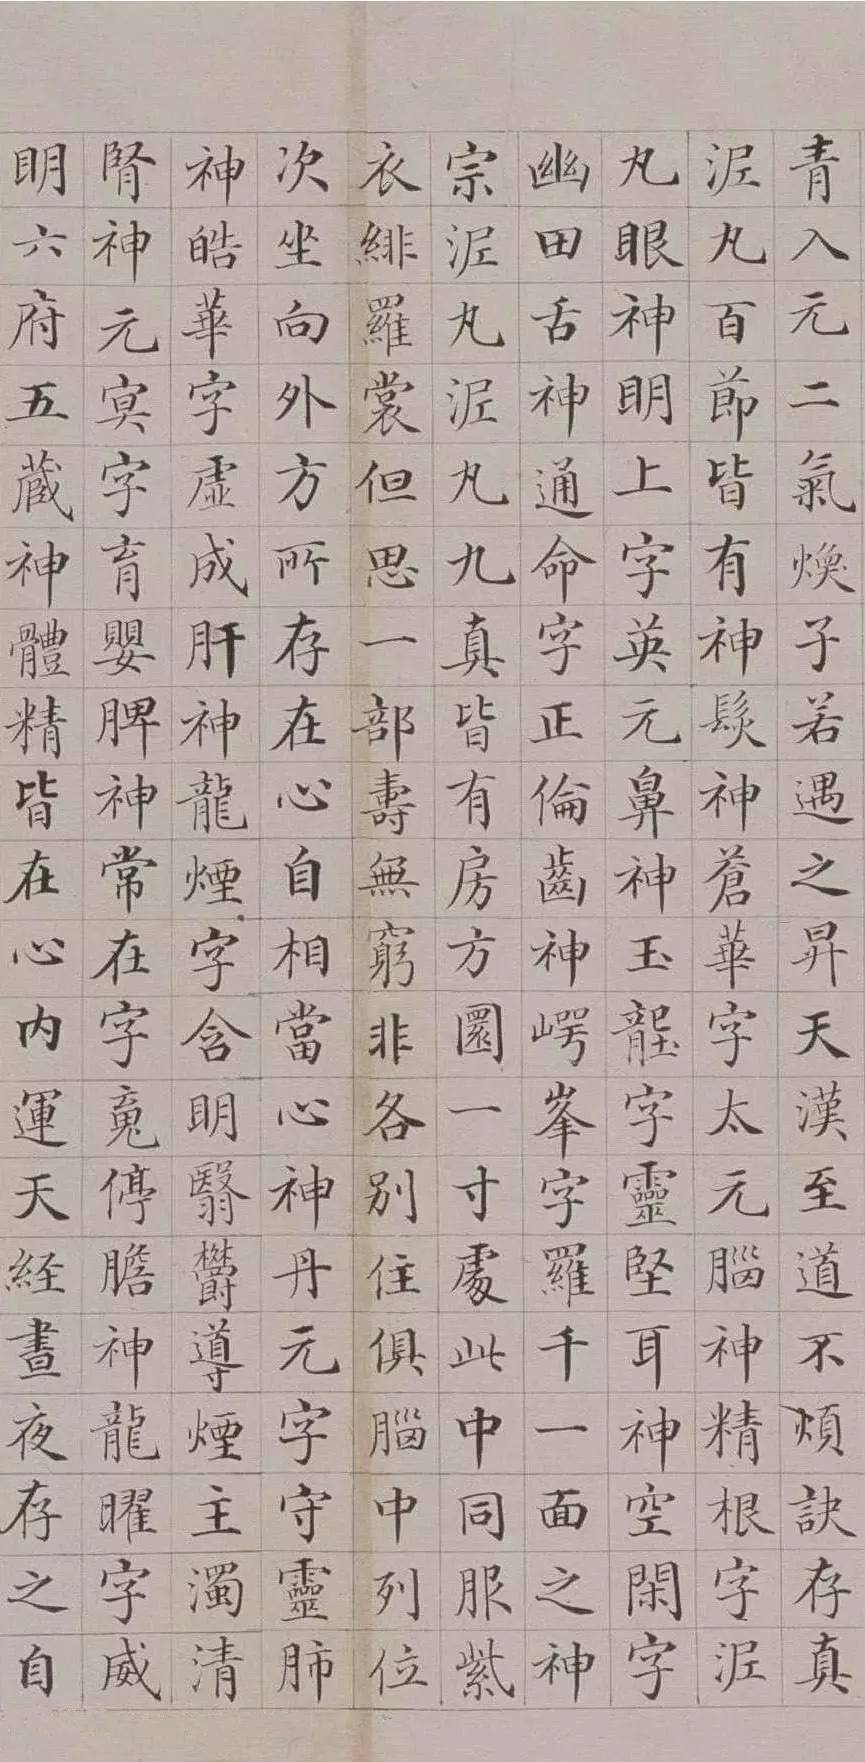 青入元二氣煥子若遇之昇天漢至道不煩訣存真
泥丸百節皆有神髮神蒼華字太元腦神精根字泥
丸眼神明上字英元鼻神玉壟字靈堅耳神空閑字
幽田舌神通命字正倫齒神崿峯字羅千一面之神
宗泥丸泥丸九真皆有房方圓一寸處此中同服紫
衣緋羅裳但思一部壽無窮非各別住俱腦中列位
次坐向外方所存在心自相當心神丹元字守靈肺
神皓華字虛成肝神龍煙字含明翳鬱導煙主濁清
腎神元冥字育嬰脾神常在字魂停膽神龍曜字威
明六府五藏神體精皆在心內運天經晝夜存之自